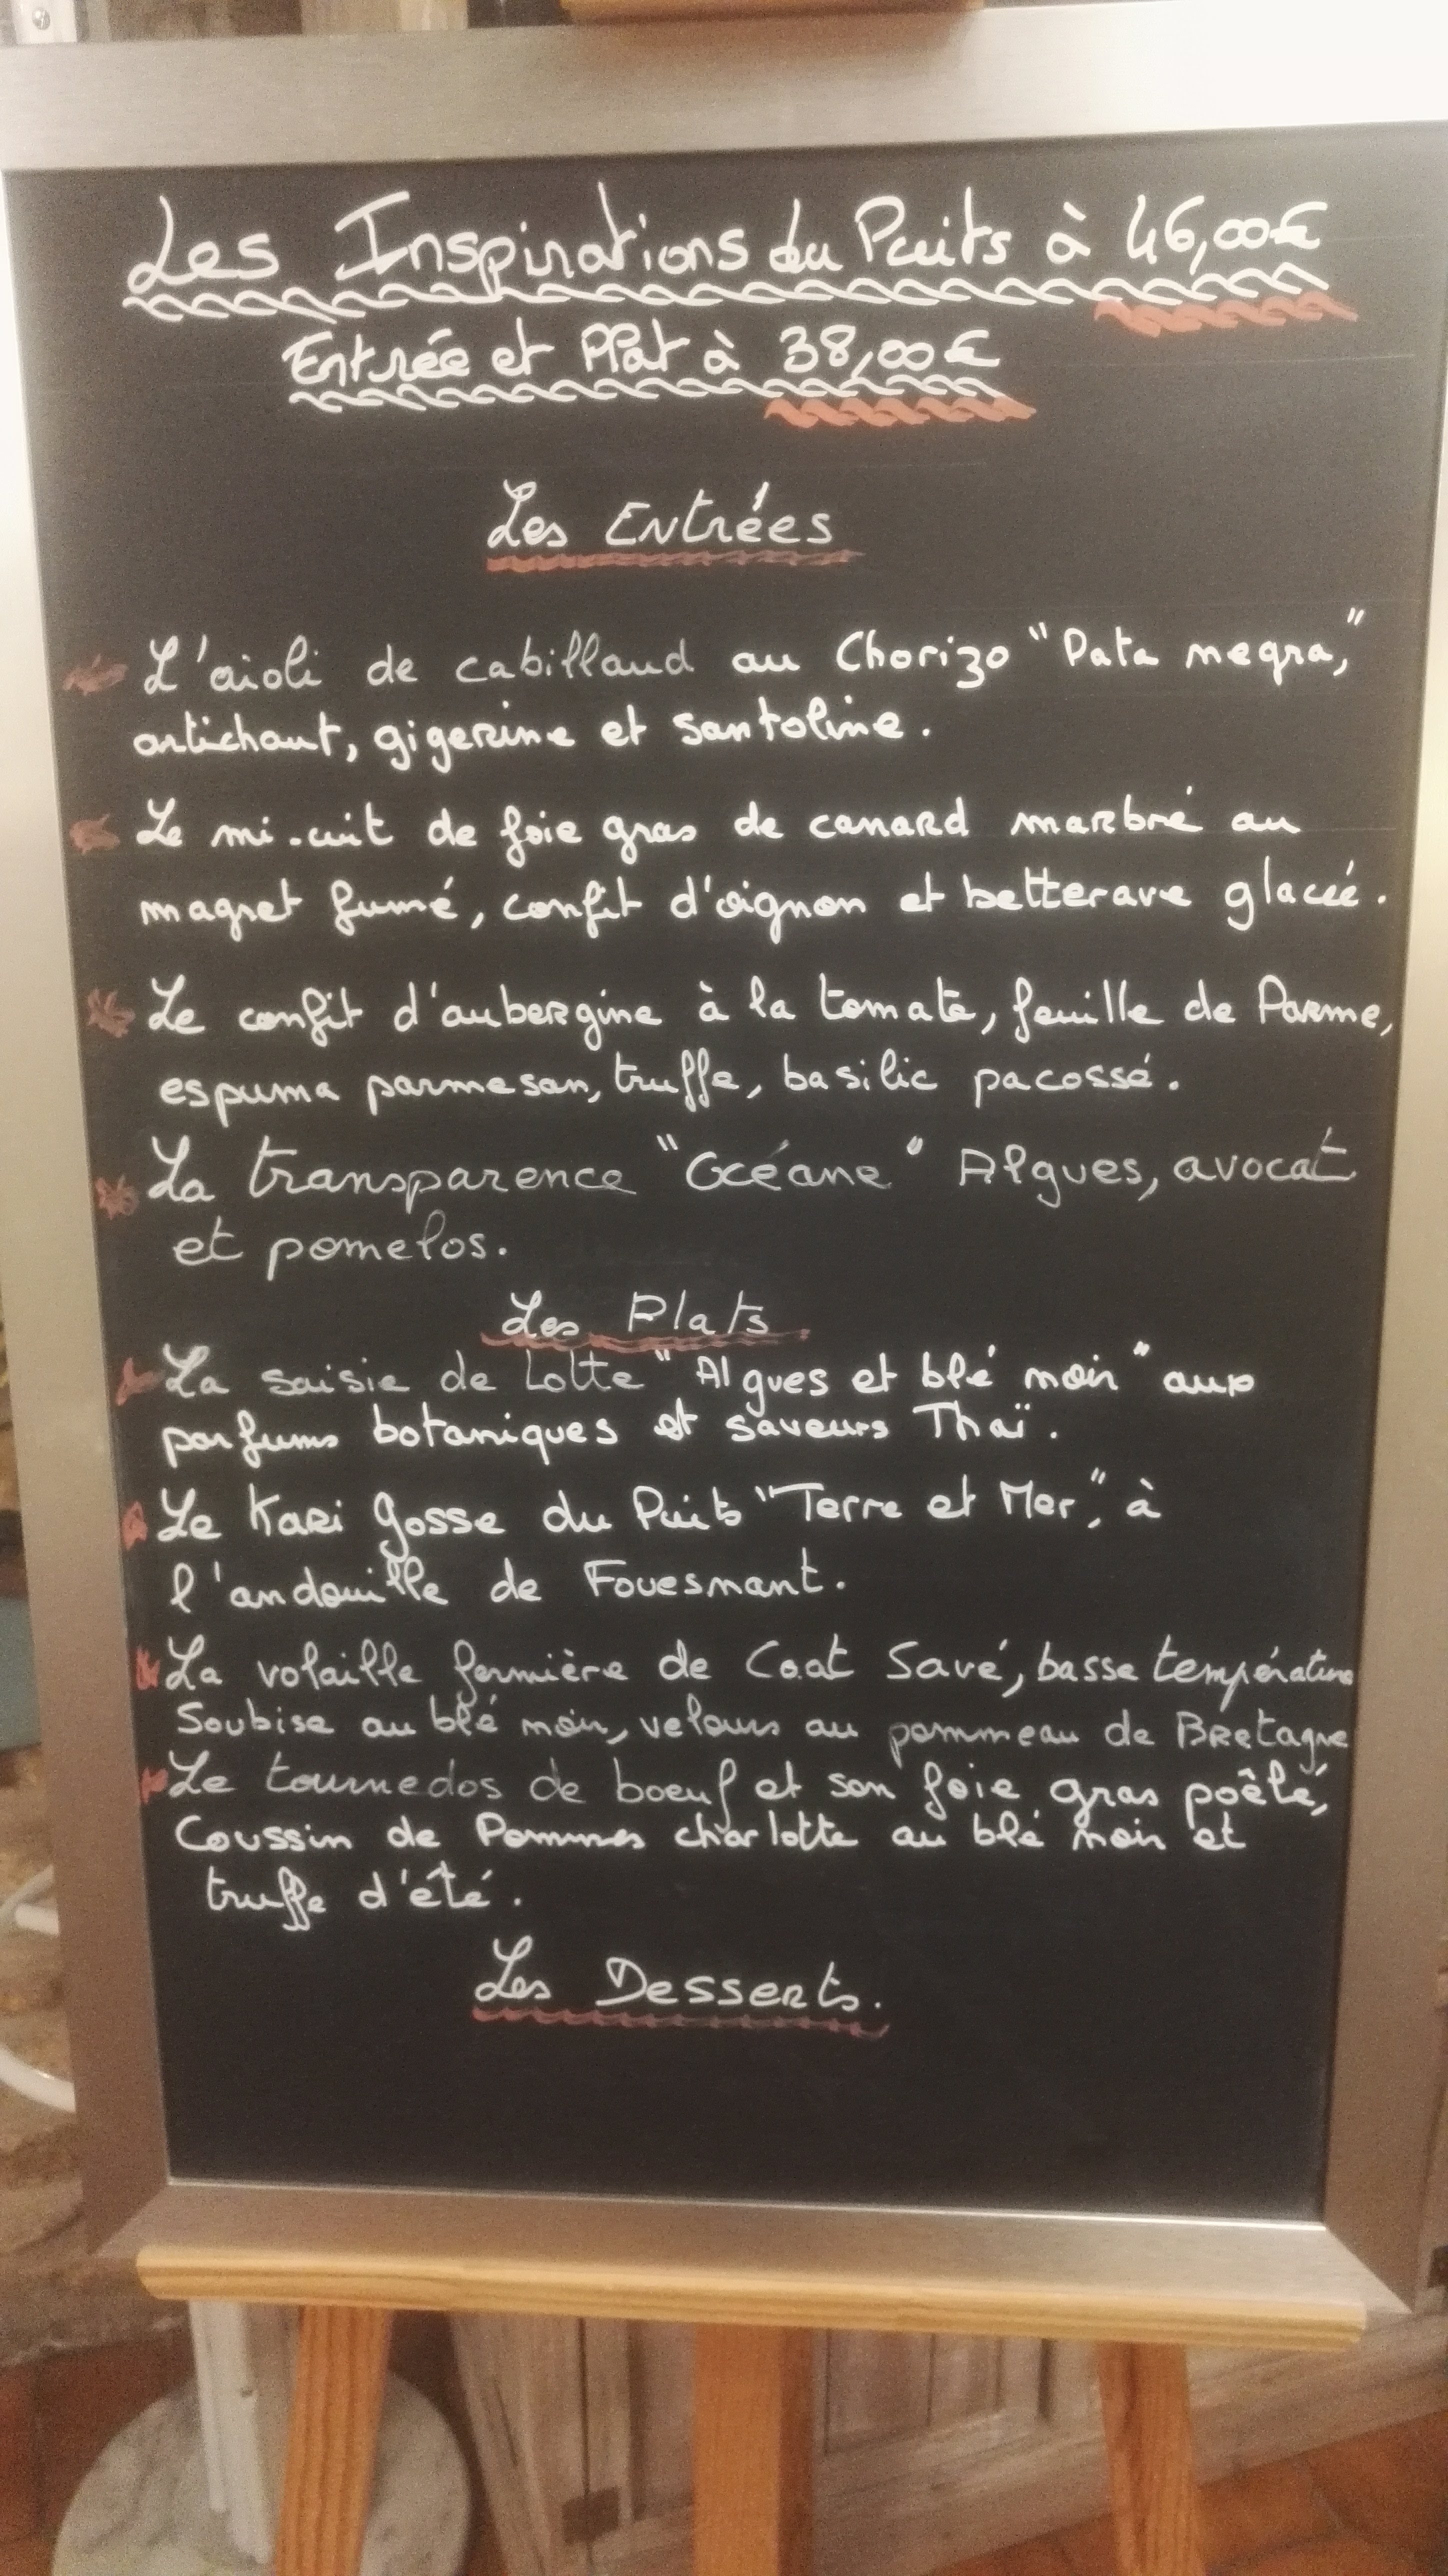 Les Inspirations du Puits à 46,00€
Entrée et Plat à 38,00€
Les Entrées
L'aioli de cabillaud au Chorizo "Pata negra,"
artichaut, gigerine et santoline.
Le mi-cuit de foie gras de canard marbré au
magret fumé, confit d'oignon et betterave glacée.
Le confit d'aubergine à la tomate, feuille de Parme,
espuma parmesan, truffe, basilic pacossé.
La transparence "Océane" Algues, avocat
et pomelos.
Les Plats
La saisie de Lotte "Algues et blé noir" aux
parfums botaniques et saveurs Thaï.
Le Kari Gosse du Puits "Terre et Mer", à
l'andouille de Fouesnant.
La volaille fermière de Coat Savé, basse température
Soubise au blé noir, velours au pommeau de Bretagne
Le tournedos de boeuf et son foie gras poêlé,
Coussin de Pommes charlotte au blé noir et
truffe d'été.
Les Desserts.